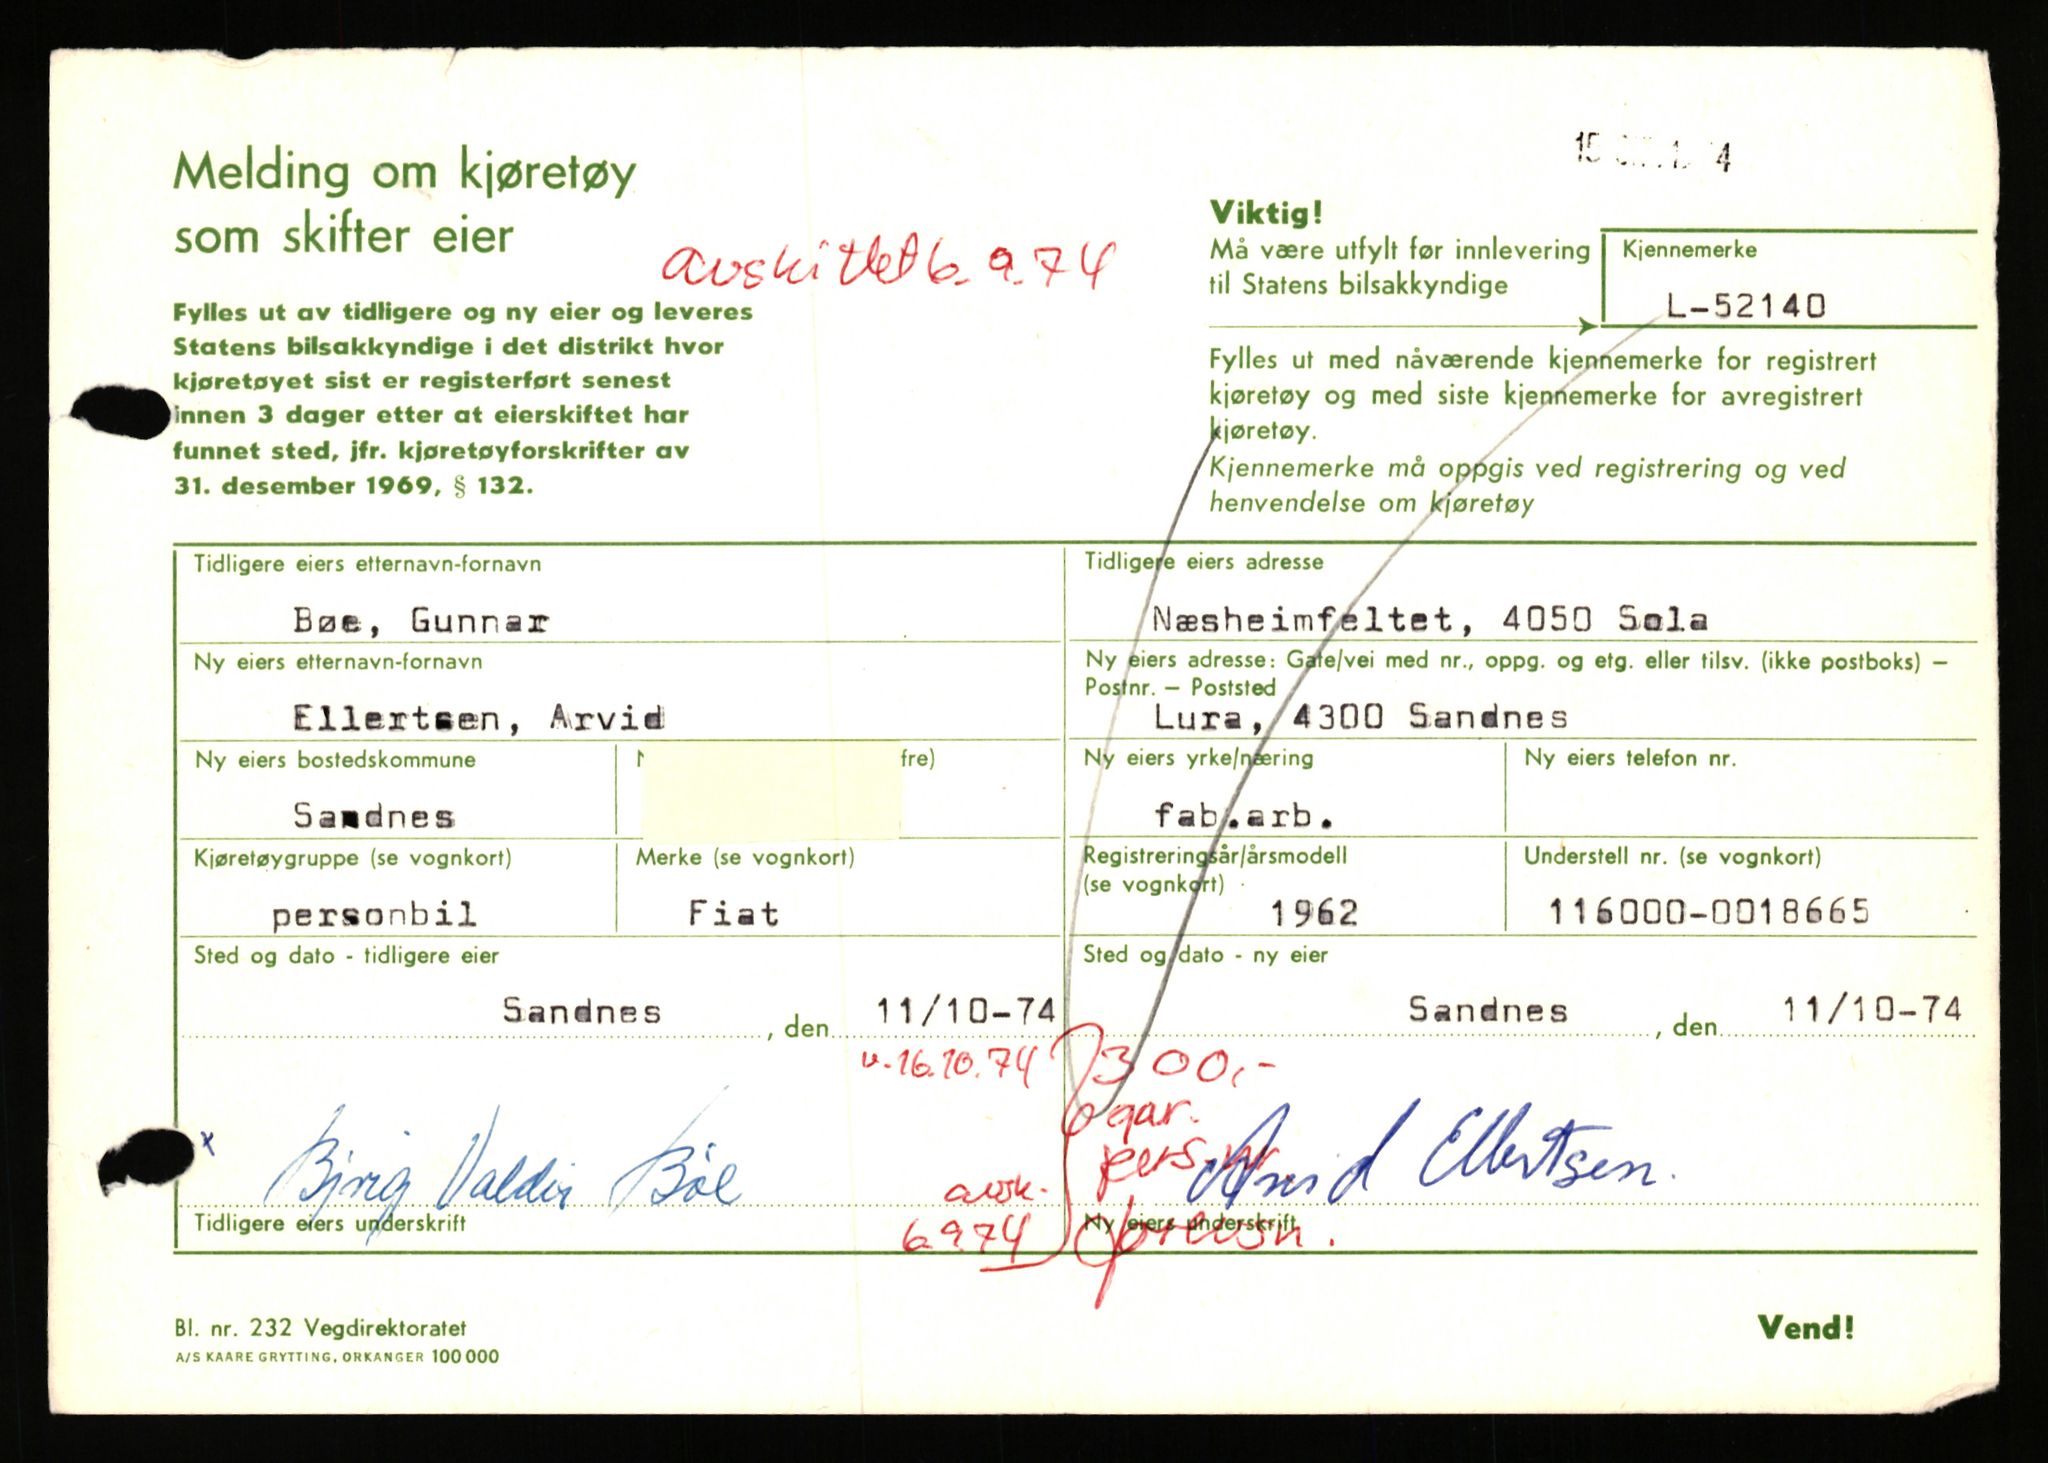 Melding om kjøretøy
som skifter eier
avskiltet 6.9.74
Fylles ut av tidligere og ny eier og leveres
Statens bilsakkyndige i det distrikt hvor
kjøretøyet sist er registerført senest
innen 3 dager etter at eierskiftet har
funnet sted, jfr. kjøretøyforskrifter av
31. desember 1969, § 132.
Viktig!
Må være utfylt før innlevering
til Statens bilsakkyndige
Kjennemerke
L-52140
Fylles ut med nåværende kjennemerke for registrert
kjøretøy og med siste kjennemerke for avregistrert
kjøretøy.
Kjennemerke må oppgis ved registrering og ved
henvendelse om kjøretøy
Tidligere eiers etternavn-fornavn
Bøe, Gunnar
Tidligere eiers adresse
Næsheimfeltet, 4050 Sola
Ny eiers etternavn-fornavn
Ellertsen, Arvid
Ny eiers adresse: Gate/vei med nr., oppg. og etg. eller tilsv. (ikke postboks) –
Postnr. – Poststed
Lura, 4300 Sandnes
Ny eiers bostedskommune
Sandnes
fre)
Ny eiers yrke/næring
fab.arb.
Ny eiers telefon nr.
Kjøretøygruppe (se vognkort)
personbil
Merke (se vognkort)
Fiat
Registreringsår/årsmodell
(se vognkort)
1962
Understell nr. (se vognkort)
116000-0018665
Sted og dato - tidligere eier
Sandnes, den 11/10-74
Sted og dato - ny eier
Sandnes, den 11/10-74
v. 16.10.74
300,-
gar.
pers.nr.
x Valdir Bøe
Arvid Ellertsen.
avsk.
6.9.74
Tidligere eiers underskrift
Ny eiers underskrift
Bl. nr. 232 Vegdirektoratet
A/S KAARE GRYTTING, ORKANGER 100 000
Vend!